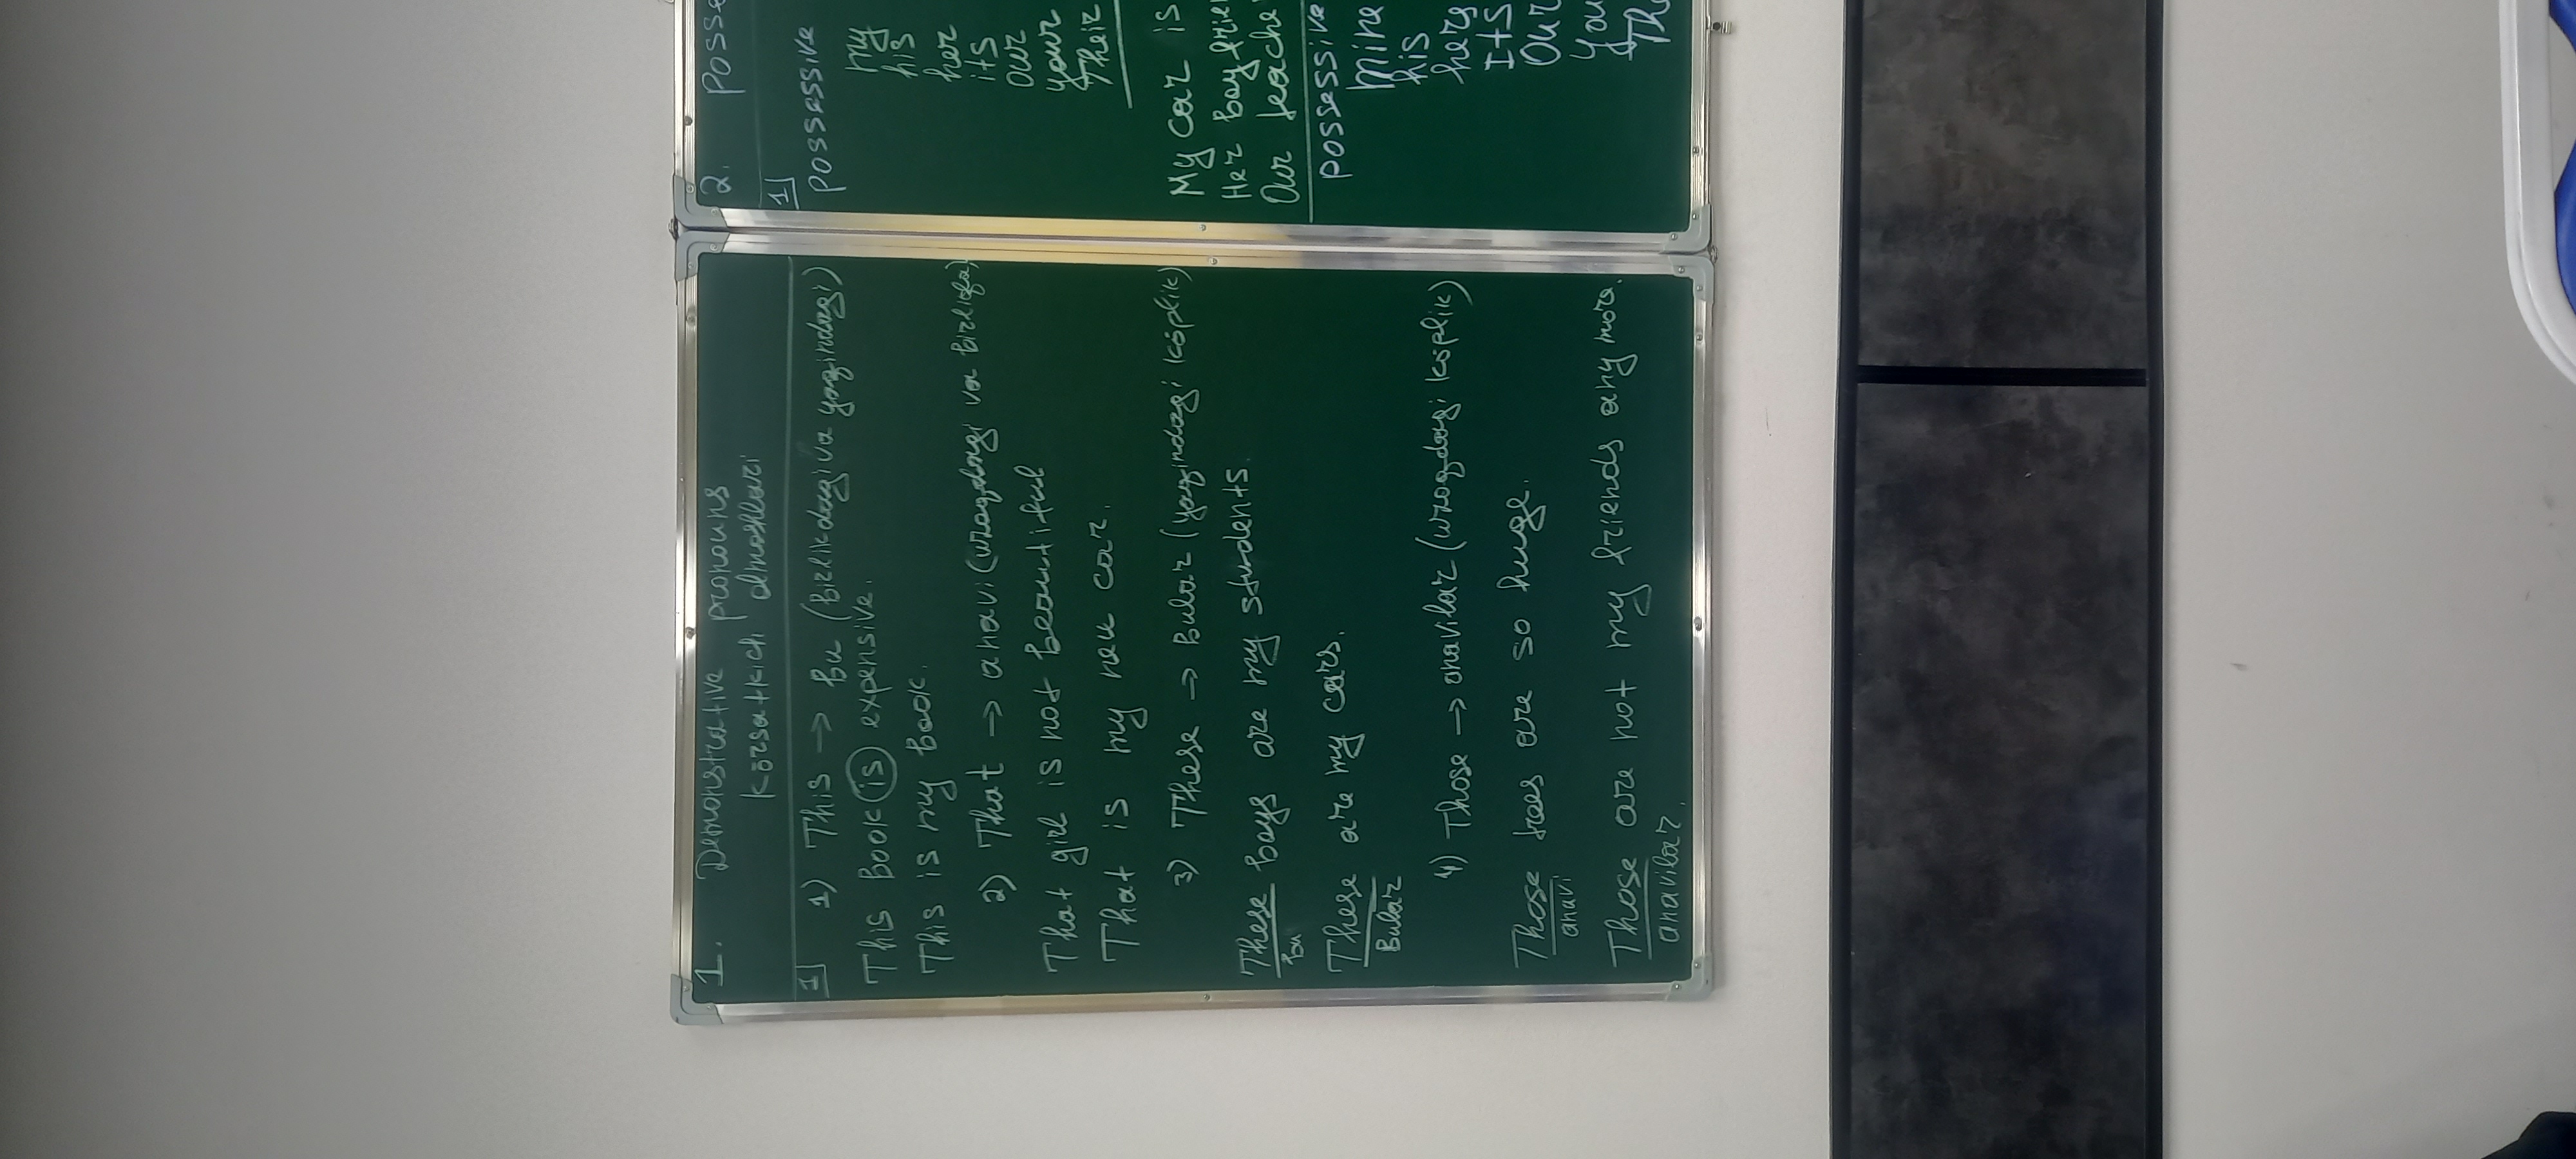 1. Demonstrative pronouns
Kōrsatkich olmoshlari
1 1) This → bu (birlikdagi va yaqindagi)
This book is expensive.
This is my book.
2) That → anavi (uzoqdagi va birlikda)
That girl is not beautiful
That is my new car.
3) These → Bular (yaqindagi kōplik)
These boys are my students.
bu
These are my cars.
Bular
4) Those → anavilar (uzoqdagi kōplik)
Those trees are so huge.
anavi
Those are not my friends any more.
anavilar.
2. Posse
1
Possessive
my
his
her
its
our
your
Their
My car is
Her boyfrie
Our teache
Possessive
mine
his
hers
Its
Our
You
The